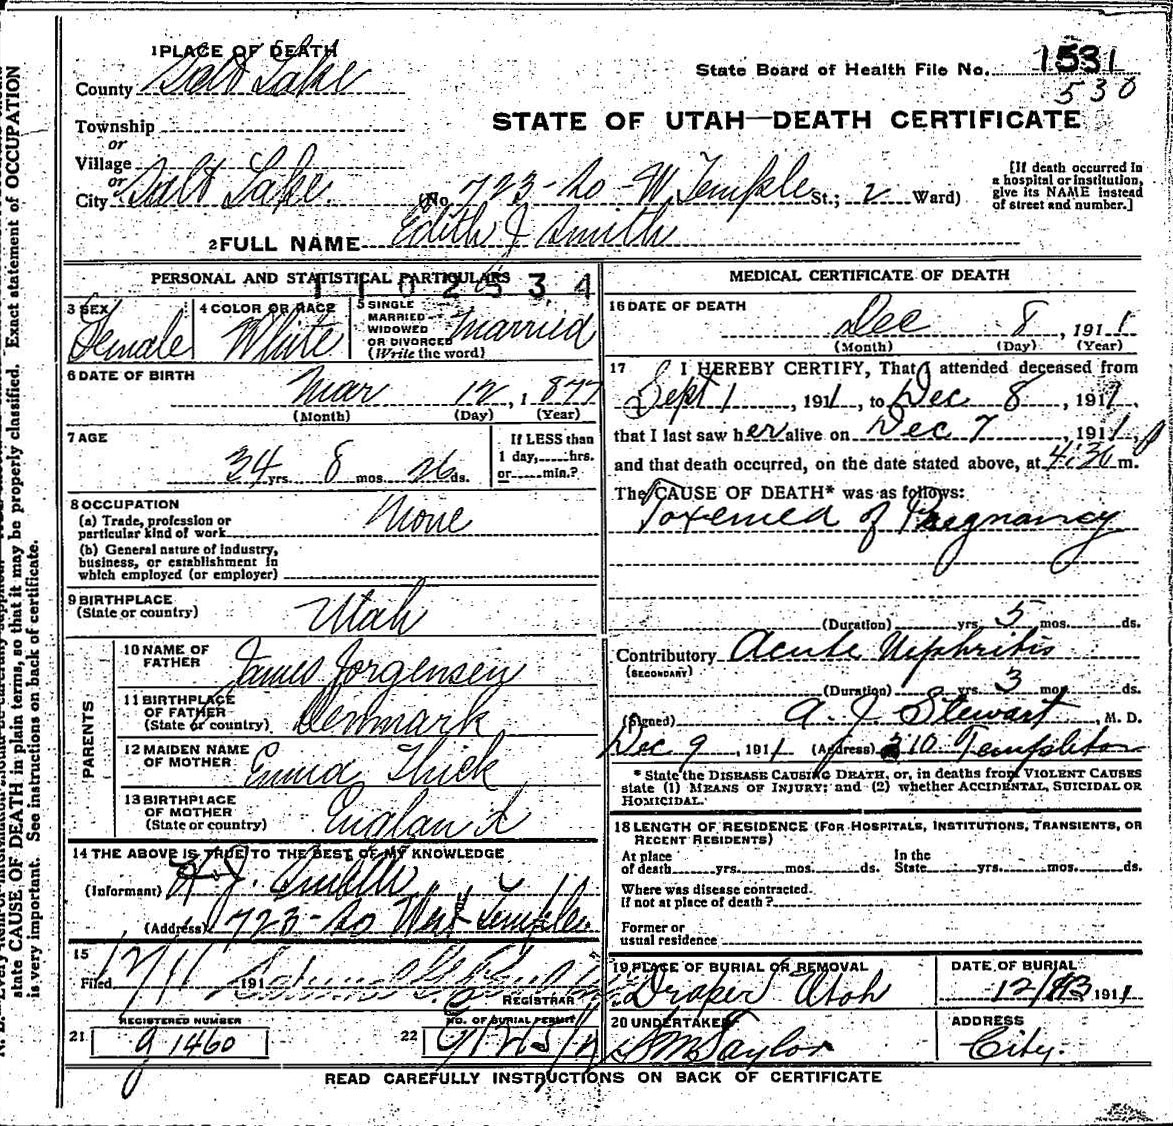 1 PLACE OF DEATH
County Salt Lake
State Board of Health File No. 1531
530
STATE OF UTAH—DEATH CERTIFICATE
Township
or
Village
or
City Salt Lake (No. 723 - So - W Temple St.; 2 Ward)
[If death occurred in a hospital or institution, give its NAME instead of street and number.]
2 FULL NAME Edith J Smith
PERSONAL AND STATISTICAL PARTICULARS
1102534
3 SEX Female
4 COLOR OR RACE White
5 SINGLE MARRIED WIDOWED OR DIVORCED (Write the word) Married
6 DATE OF BIRTH
Mar 12, 1877
(Month) (Day) (Year)
7 AGE
34 yrs. 8 mos. 26 ds.
If LESS than 1 day, hrs. or min.?
8 OCCUPATION
(a) Trade, profession or particular kind of work None
(b) General nature of industry, business, or establishment in which employed (or employer)
9 BIRTHPLACE
(State or country) Utah
PARENTS
10 NAME OF FATHER James Jorgensen
11 BIRTHPLACE OF FATHER (State or country) Denmark
12 MAIDEN NAME OF MOTHER Emma Thick
13 BIRTHPLACE OF MOTHER (State or country) England
14 THE ABOVE IS TRUE TO THE BEST OF MY KNOWLEDGE
(Informant) H. J. Smith
(Address) 723 - So West Temple
15
Filed 191
REGISTRAR
REGISTERED NUMBER
21 g 1460
NO. OF BURIAL PERMIT
22
MEDICAL CERTIFICATE OF DEATH
16 DATE OF DEATH
Dec 8, 1911
(Month) (Day) (Year)
17 I HEREBY CERTIFY, That I attended deceased from
Sept 1, 1911, to Dec 8, 1911,
that I last saw her alive on Dec 7 1911,
and that death occurred, on the date stated above, at 4:30 P m.
The CAUSE OF DEATH* was as follows:
Toxemea of Pregnancy
(Duration) yrs. 5 mos. ds.
Contributory Acute Nephritis
(SECONDARY)
(Duration) yrs. 3 mos. ds.
(Signed) A. J. Stewart, M. D.
Dec 9, 1911 (Address) 310 Templeton
* State the DISEASE CAUSING DEATH, or, in deaths from VIOLENT CAUSES
state (1) MEANS OF INJURY; and (2) whether ACCIDENTAL, SUICIDAL OR
HOMICIDAL.
18 LENGTH OF RESIDENCE (FOR HOSPITALS, INSTITUTIONS, TRANSIENTS, OR
RECENT RESIDENTS)
At place of death yrs. mos. ds. In the State yrs. mos. ds.
Where was disease contracted.
If not at place of death?
Former or
usual residence
19 PLACE OF BURIAL OR REMOVAL Draper Utah
DATE OF BURIAL
12/ 1911
20 UNDERTAKER S M Taylor
ADDRESS
City.
READ CAREFULLY INSTRUCTIONS ON BACK OF CERTIFICATE
state CAUSE OF DEATH in plain terms, so that it may be properly classified. Exact statement of OCCUPATION
is very important. See instructions on back of certificate.